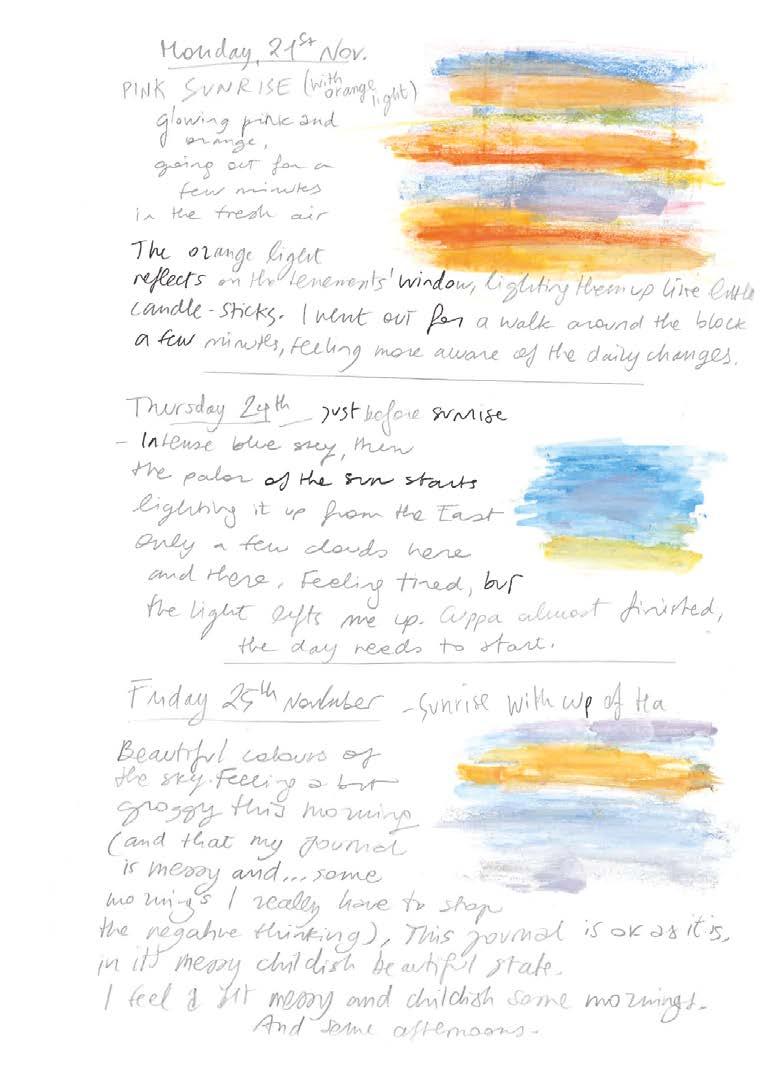 Monday, 21st Nov.
PINK SUNRISE (with orange light)
glowing pink and
orange,
going out for a
few minutes
in the fresh air
The orange light
reflects on the tenements' window, lighting them up like little
candle-sticks. I went out for a walk around the block
a few minutes, feeling more aware of the daily changes.
Thursday 24th just before sunrise
- Intense blue sky, then
the palor of the sun starts
lighting it up from the East
only a few clouds here
and there. Feeling tired, but
the light lifts me up. Cuppa almost finished,
the day needs to start.
Friday 25th November - Sunrise with cup of tea
Beautiful colours of
the sky. Feeling a bit
groggy this morning
(and that my journal
is messy and... some
mornings I really have to stop
the negative thinking), This journal is ok as it is,
in it's messy childish beautiful state.
I feel a bit messy and childish some mornings.
And some afternoons.